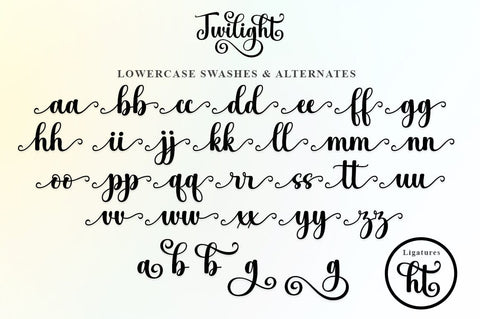 Twilight
LOWERCASE SWASHES & ALTERNATES
aa bb cc dd ee ff gg
hh ii jj kk ll mm nn
oo pp qq rr ss tt uu
vv ww xx yy zz
a b b g g
Ligatures
ht